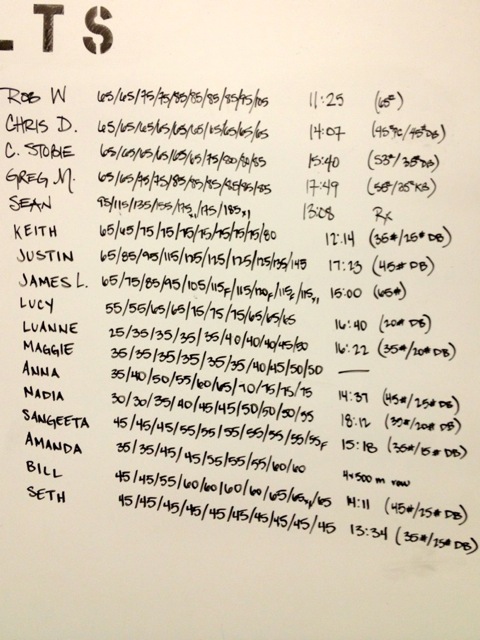 LTS
ROB W 65/65/75/75/85/85/85/85/95/105 11:25 (65#)
CHRIS D. 65/65/65/65/65/65/65/65/65/65 14:07 (45#/45# DB)
C. STOBIE 65/65/65/65/65/65/75/80/80/85 15:40 (53#/35# DB)
GREG M. 65/65/75/75/85/85/85/85/85/85 17:49
SEAN 95/115/135/155/175 /175/185 13:08 Rx
KEITH 65/65/75/75/75/75/75/75/75/80 12:14 (35#/25# DB)
JUSTIN 65/85/95/115/125/125/125/125/135/145 17:23 (45# DB)
JAMES L. 65/75/85/95/105/115F/115/120F/115F/115 15:00 (65#)
LUCY 55/55/65/65/75/75/75/65/65/65 16:40 (20# DB)
LUANNE 25/35/35/35/35/40/40/40/45/50 16:22 (35#/20# DB)
MAGGIE 35/35/35/35/35/35/40/45/50/50 —
ANNA 35/40/50/55/60/65/70/75/75/75 14:37 (45#/25# DB)
NADIA 30/30/35/40/45/45/50/50/50/55 18:12 (35#/20# DB)
SANGEETA 45/45/45/55/55/55/55/55/55/55F 15:18 (35#/15# DB)
AMANDA 35/35/45/45/35/55/55/60/60 4x500 m row
BILL 45/45/55/60/60/60/60/65/65 /65 14:11 (45#/25# DB)
SETH 45/45/45/45/45/45/45/45/45/45 13:34 (35#/25# DB)